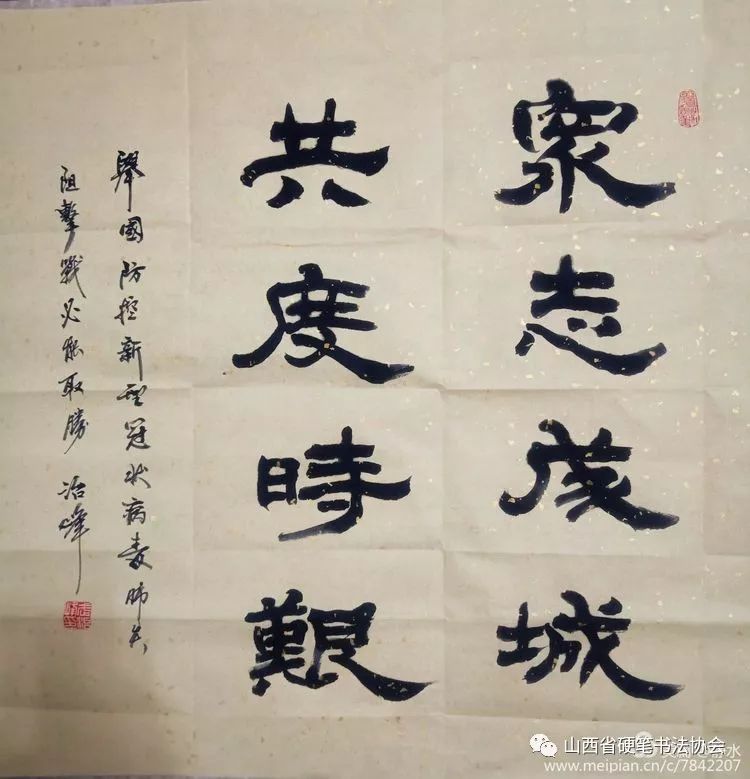 眾志成城
共度時艱
舉國防控新型冠狀病毒肺炎
阻擊戰必能取勝 治峰
山西省硬笔书法协会
www.meipian.cn/c/7842207